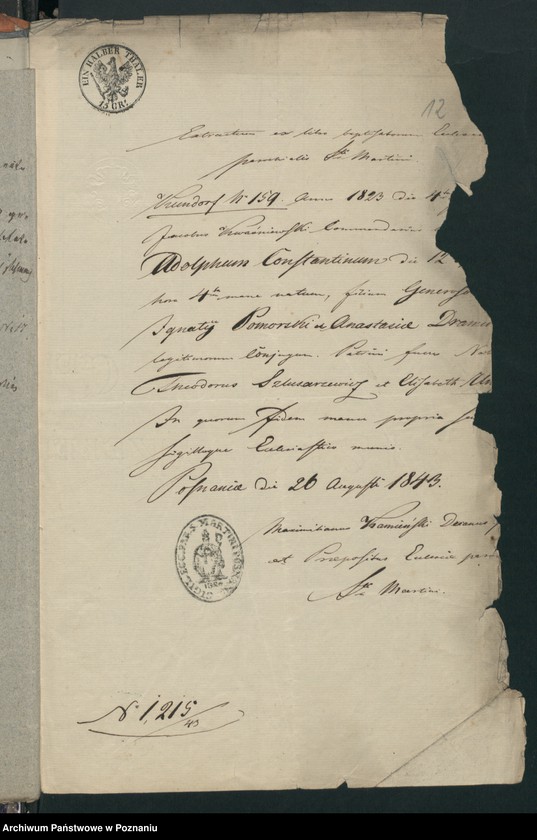 EIN HALBER THALER
15 GR.
12
Extractum ex libro baptisatorum Ecclesiae
parochialis Sti Martini
Nr 159. Anno 1823 die 4ta
Jacobus Kwaśniewski Commendarius
Adolphum Constantinum die 12
hora 4ta mane natum, filium Generoso
Ignatij Pomorski et Anastasiae
legitimorum Conjugum. Patrini fuere
Theodorus Szlusarzewicz et Elisabeth
In quorum Fidem manu propria
Sigilloque Ecclesiastico munio.
Posnaniae die 26 Augusti 1843.
Maximilianus Kamieński Decanus
et Praepositus Ecclesiae
Sti Martini.
SIGIL. ECCL. PAR. S. MARTINI POSNAN.
N 1,215/43
Archiwum Państwowe w Poznaniu